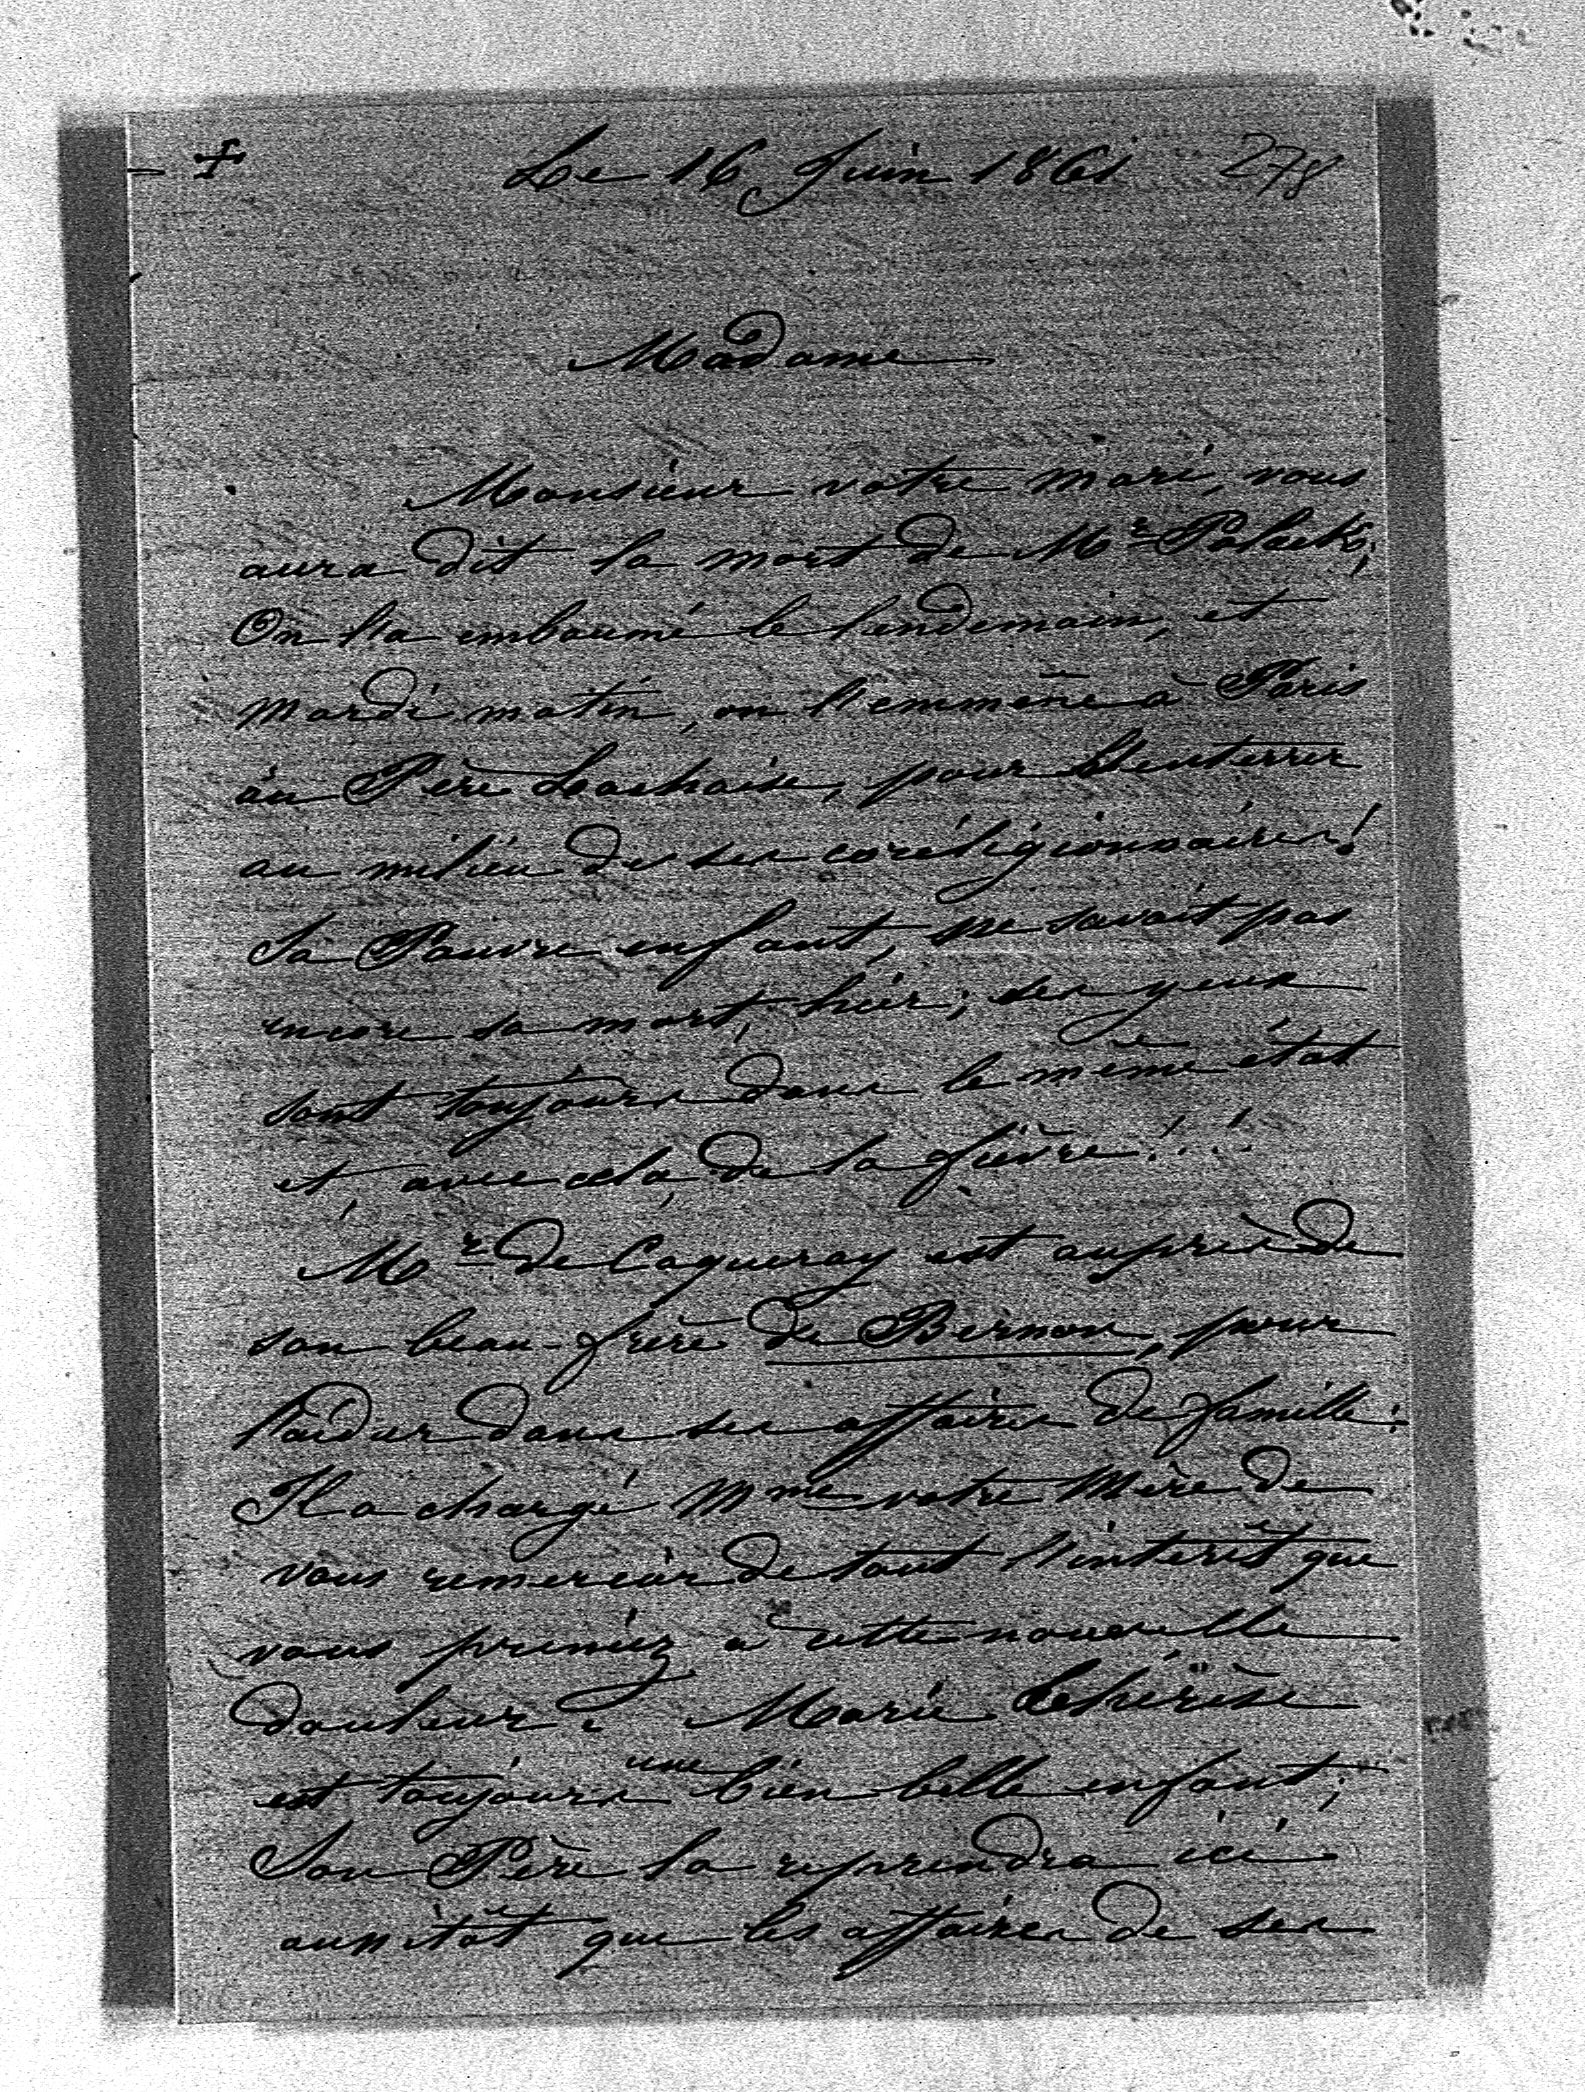 + Le 16 Juin 1861 278
Madame
Monsieur votre mari, vous
aura dit la mort de Mr Polack;
On l'a embaumé le lendemain, et
mardi matin, on l'emmène à Paris
au Père Lachaise, pour l'enterrer
au milieu de ses coreligionnaires!
Sa Pauvre enfant, ne savait pas
encore sa mort, hier; ses yeux
sont toujours dans le même état
et, avec cela, de la fièvre!.!
Mr de Caqueray est auprès de
son beau-frère de Bernon, pour
l'aider dans ses affaires de famille:
Il a chargé Mme votre Mère de
vous remercier de tout l'intérêt que
vous preniez à cette nouvelle
douleur. Marie Thérèse
est toujours une bien belle enfant;
Son Père la reprendra ici
aussitôt que les affaires de ses